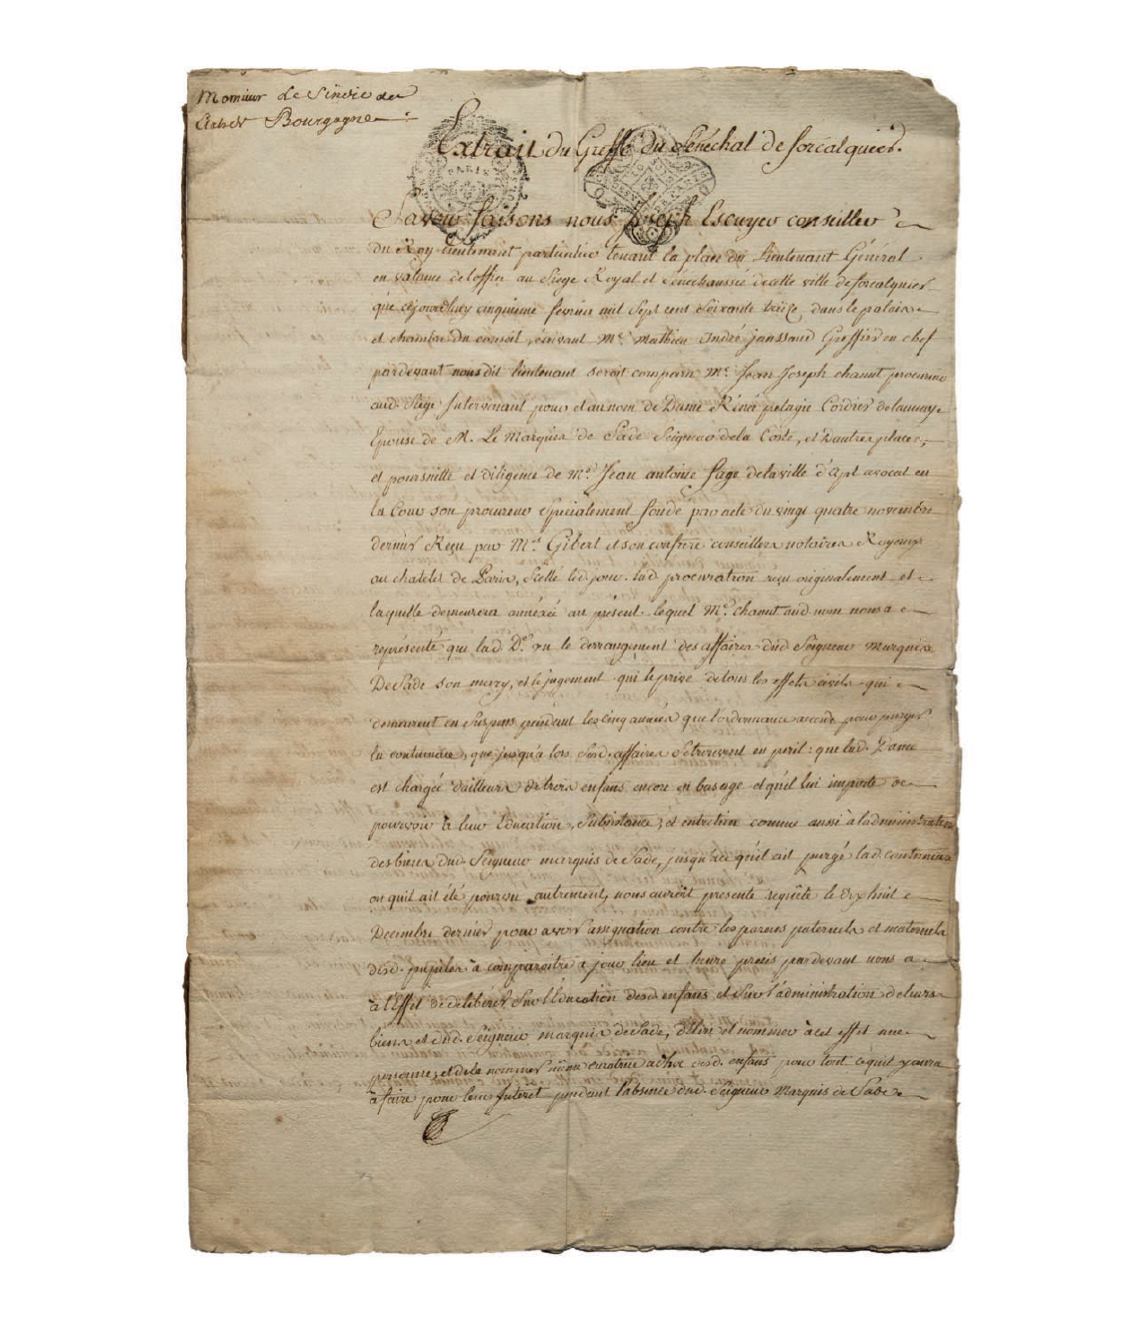 Monsieur Le Sindic des
Bourgogne
Extrait du Greffe du Sénéchal de forcalquier.
PARIS
Savoir faisons nous Joseph Escuyer conseiller
du Roy Lieutenant particulier tenant la place du Lieutenant Général
en vacance de l'office au Siege Royal et Sénéchaussée de cette ville de forcalquier
que cejourdhuy cinquieme fevrier mil Sept cent Soixante treize dans le palais
et chambre du conseil, écrivant Me. Mathieu André jaussaud Greffier en chef
pardevant nousdit lieutenant seroit comparu Me. Jean Joseph chanut procureur
aud. Siege Intervenant pour et au nom de Dame Réneé pelagie Cordier delaunay
Epouse de M. Le Marquis de Sade Seigneur dela Coste, et d'autres places,
et poursuitte et diligence de Me. Jean antoine fage dela ville d'apt avocat en
la Cour son procureur Specialement fondé par acte du vingt quatre novembre
dernier Reçu par Me. Gibert et son confrere conseillers notaires Royaux
au chatelet de Paris, Scellé led. jour. lad. procuration reçu originalement et
laquelle demeurera annéxée au présent. lequel Me. chanut aud. nom nous a
représenté que lad. De. vu le derrangement des affaires dud. Seigneur Marquis
De Sade son mary, et le jugement qui le prive de tous les effets civils qui
demeurent en Suspens pendant les cinq années que l'ordonnance accorde pour purger
la contumace, que jusqu'a lors Sesd. affaires Setrouvent en peril: que lad. Dame
est chargée d'ailleurs de trois enfans encore en bas age et qu'il lui importe de
pourvoir à leur Education, Subsistance, et entretien comme aussi à l'administration
des biens dud. Seigneur marquis de Sade, jusqu'àce qu'il ait purgé lad. contumace
ou qu'il ait été pourvu autrement, nous auroit présenté requête le dix huit
Décembre dernier pour avoir assignation contre les parens paternels et maternels
desd. pupiles à comparoitre a jour lieu et heure précis pardevant nous
à l'Effet de deliberer Sur l'Education desd. enfans et Sur l'administration de leurs
biens et dud. Seigneur marquis de Sade, d'élire et nommer à cet effet une
personne, et de la nommer même curatrice desd. enfans pour tout ce qu'il y aura
à faire pour leur Interet pendant l'absence dud. Seigneur Marquis de Sade